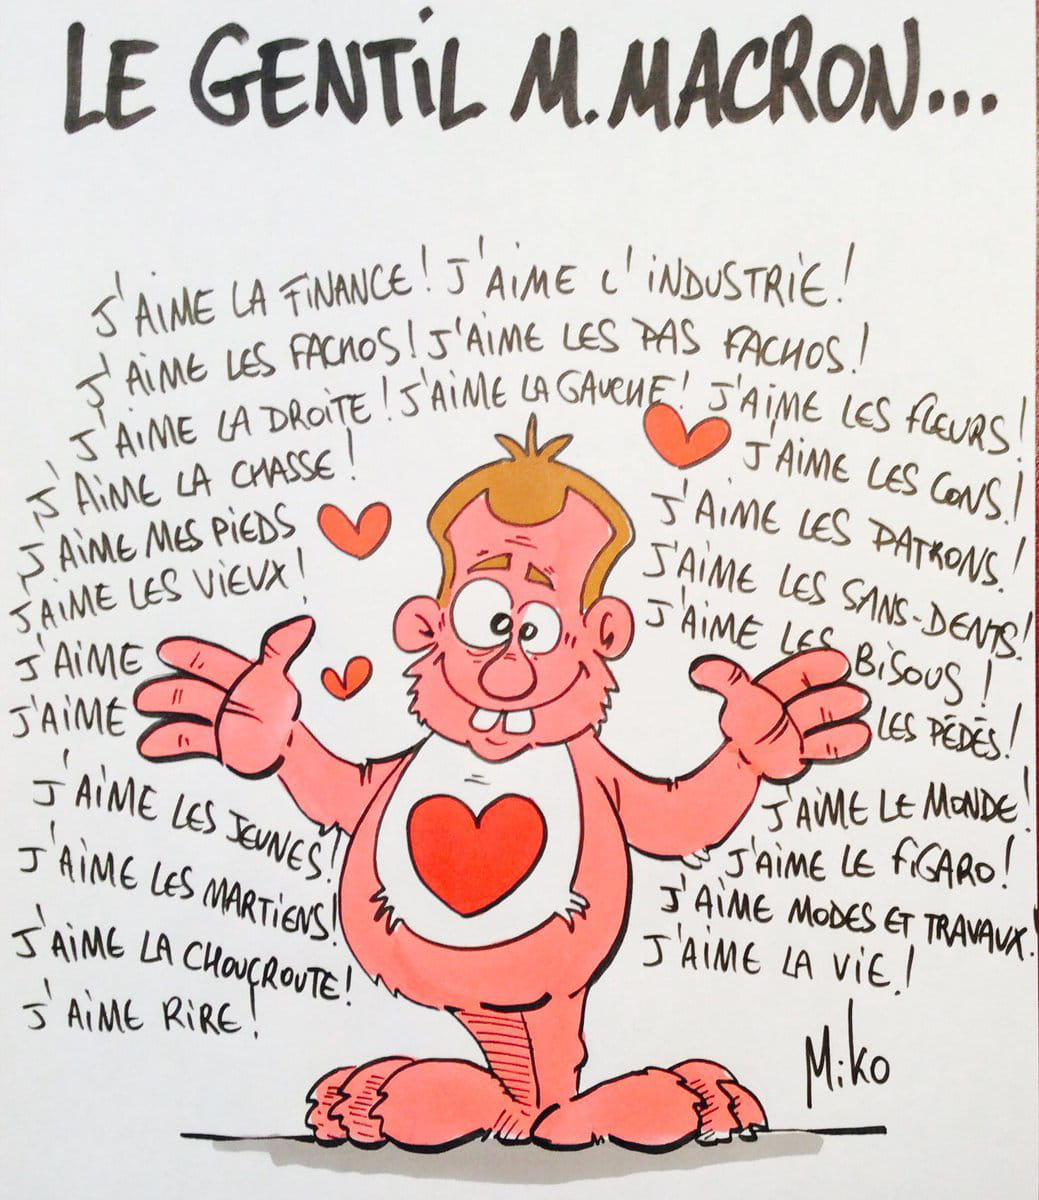 LE GENTIL M. MACRON...
J'AIME LA FINANCE! J'AIME L'INDUSTRIE!
J'AIME LES FACHOS! J'AIME LES PAS FACHOS!
J'AIME LA DROITE! J'AIME LA GAUCHE! J'AIME LES FLEURS!
J'AIME LA CHASSE!
J'AIME LES CONS!
J'AIME MES PIEDS
J'AIME LES PATRONS!
J'AIME LES VIEUX!
J'AIME LES SANS-DENTS!
J'AIME
J'AIME LES BISOUS!
J'AIME
LES PÉDÉS!
J'AIME LES JEUNES!
J'AIME LE MONDE!
J'AIME LES MARTIENS!
J'AIME LE FIGARO!
J'AIME LA CHOUCROUTE!
J'AIME MODES ET TRAVAUX.
J'AIME RIRE!
J'AIME LA VIE!
Miko